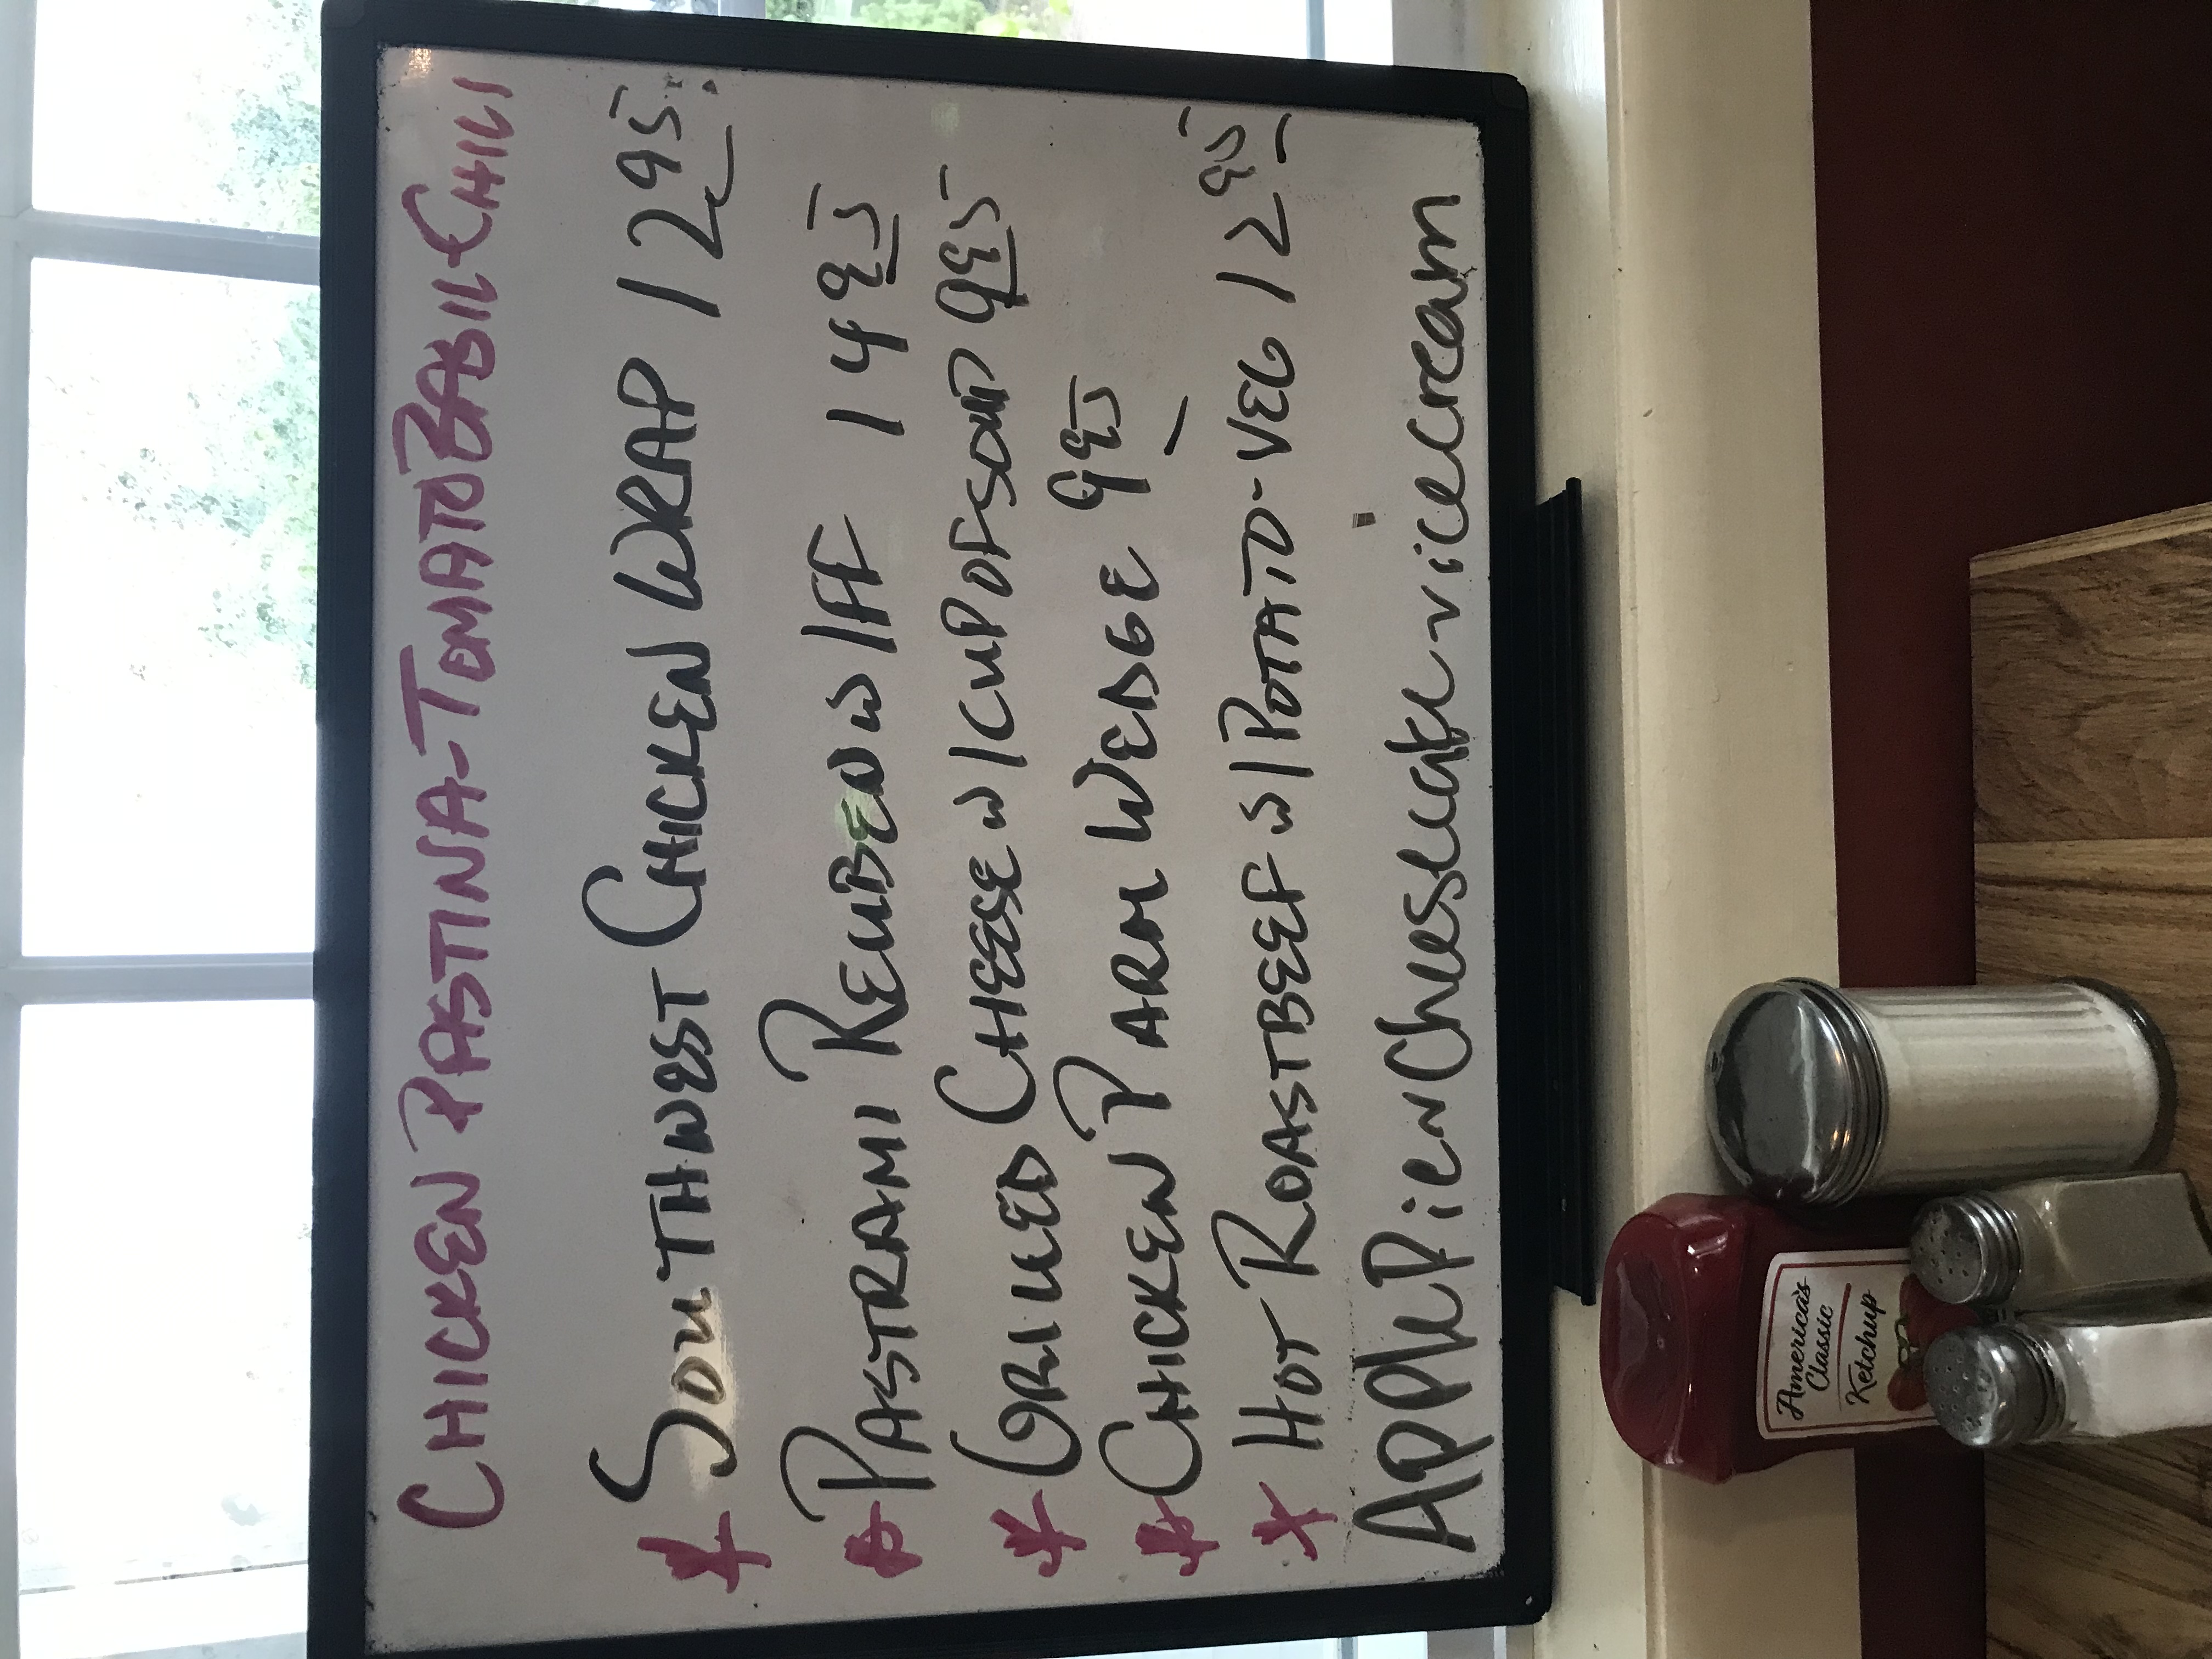 CHICKEN PASTINA-TOMATO BASIL-CHILI
* SOUTHWEST CHICKEN WRAP 12 95
* PASTRAMI REUBEN W/FF 14 95
* GRILLED CHEESE W/CUP OF SOUP 9 95
* CHICKEN PARM WEDGE 9 95
* HOT ROAST BEEF W/POTATO-VEG 12 95
APPle Pie ~ Cheesecake ~ v ice cream
America's
Classic
Ketchup